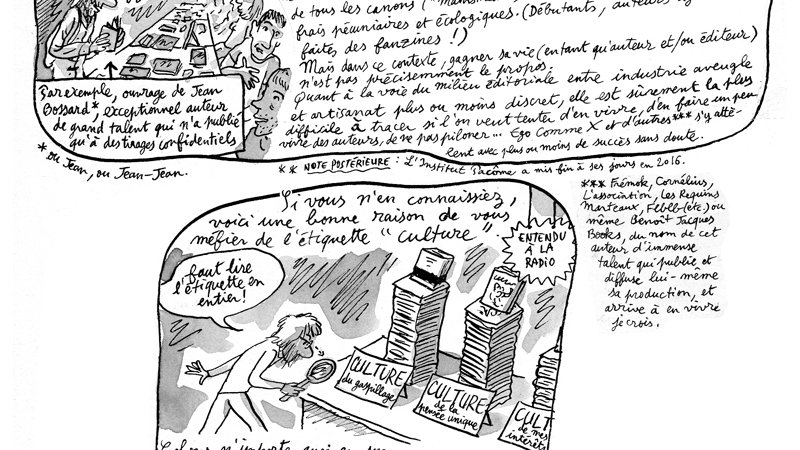 de tous les canons ("mains
frais pécuniaires et écologiques. (Débutants, auteurs
faites des fanzines !)
Mais dans ce contexte, gagner sa vie (en tant qu'auteur et/ou éditeur)
n'est pas précisemment le propos.
Quant à la voie du milieu éditoriale entre industrie aveugle
et artisanat plus ou moins discret, elle est sûrement la plus
difficile à tracer si l'on veut tenter d'en vivre, d'en faire un peu
vivre des auteurs, de ne pas pilonner... Ego Comme X et d'autres*** s'y attè-
lent avec plus ou moins de succès sans doute.
Par exemple, ouvrage de Jean
Bossard*, exceptionnel auteur
de grand talent qui n'a publié
qu'à des tirages confidentiels
* ou Jean, ou Jean-Jean.
** NOTE POSTÉRIEURE : L'Institut Pacôme a mis fin à ses jours en 2016.
*** Frémok, Cornélius,
L'association, Les Requins
Marteaux, Flblb (etc.) ou
même Benoît Jacques
Books, du nom de cet
auteur d'immense
talent qui publie et
diffuse lui-même
sa production, et
arrive à en vivre
je crois.
Si vous n'en connaissiez,
voici une bonne raison de vous
méfier de l'étiquette "culture".
ENTENDU
À LA
RADIO
faut lire
l'étiquette en
entier!
CULTURE
du gaspillage
CULTURE
de la
pensée unique
CULT
de mes
intérêts
n'importe quoi